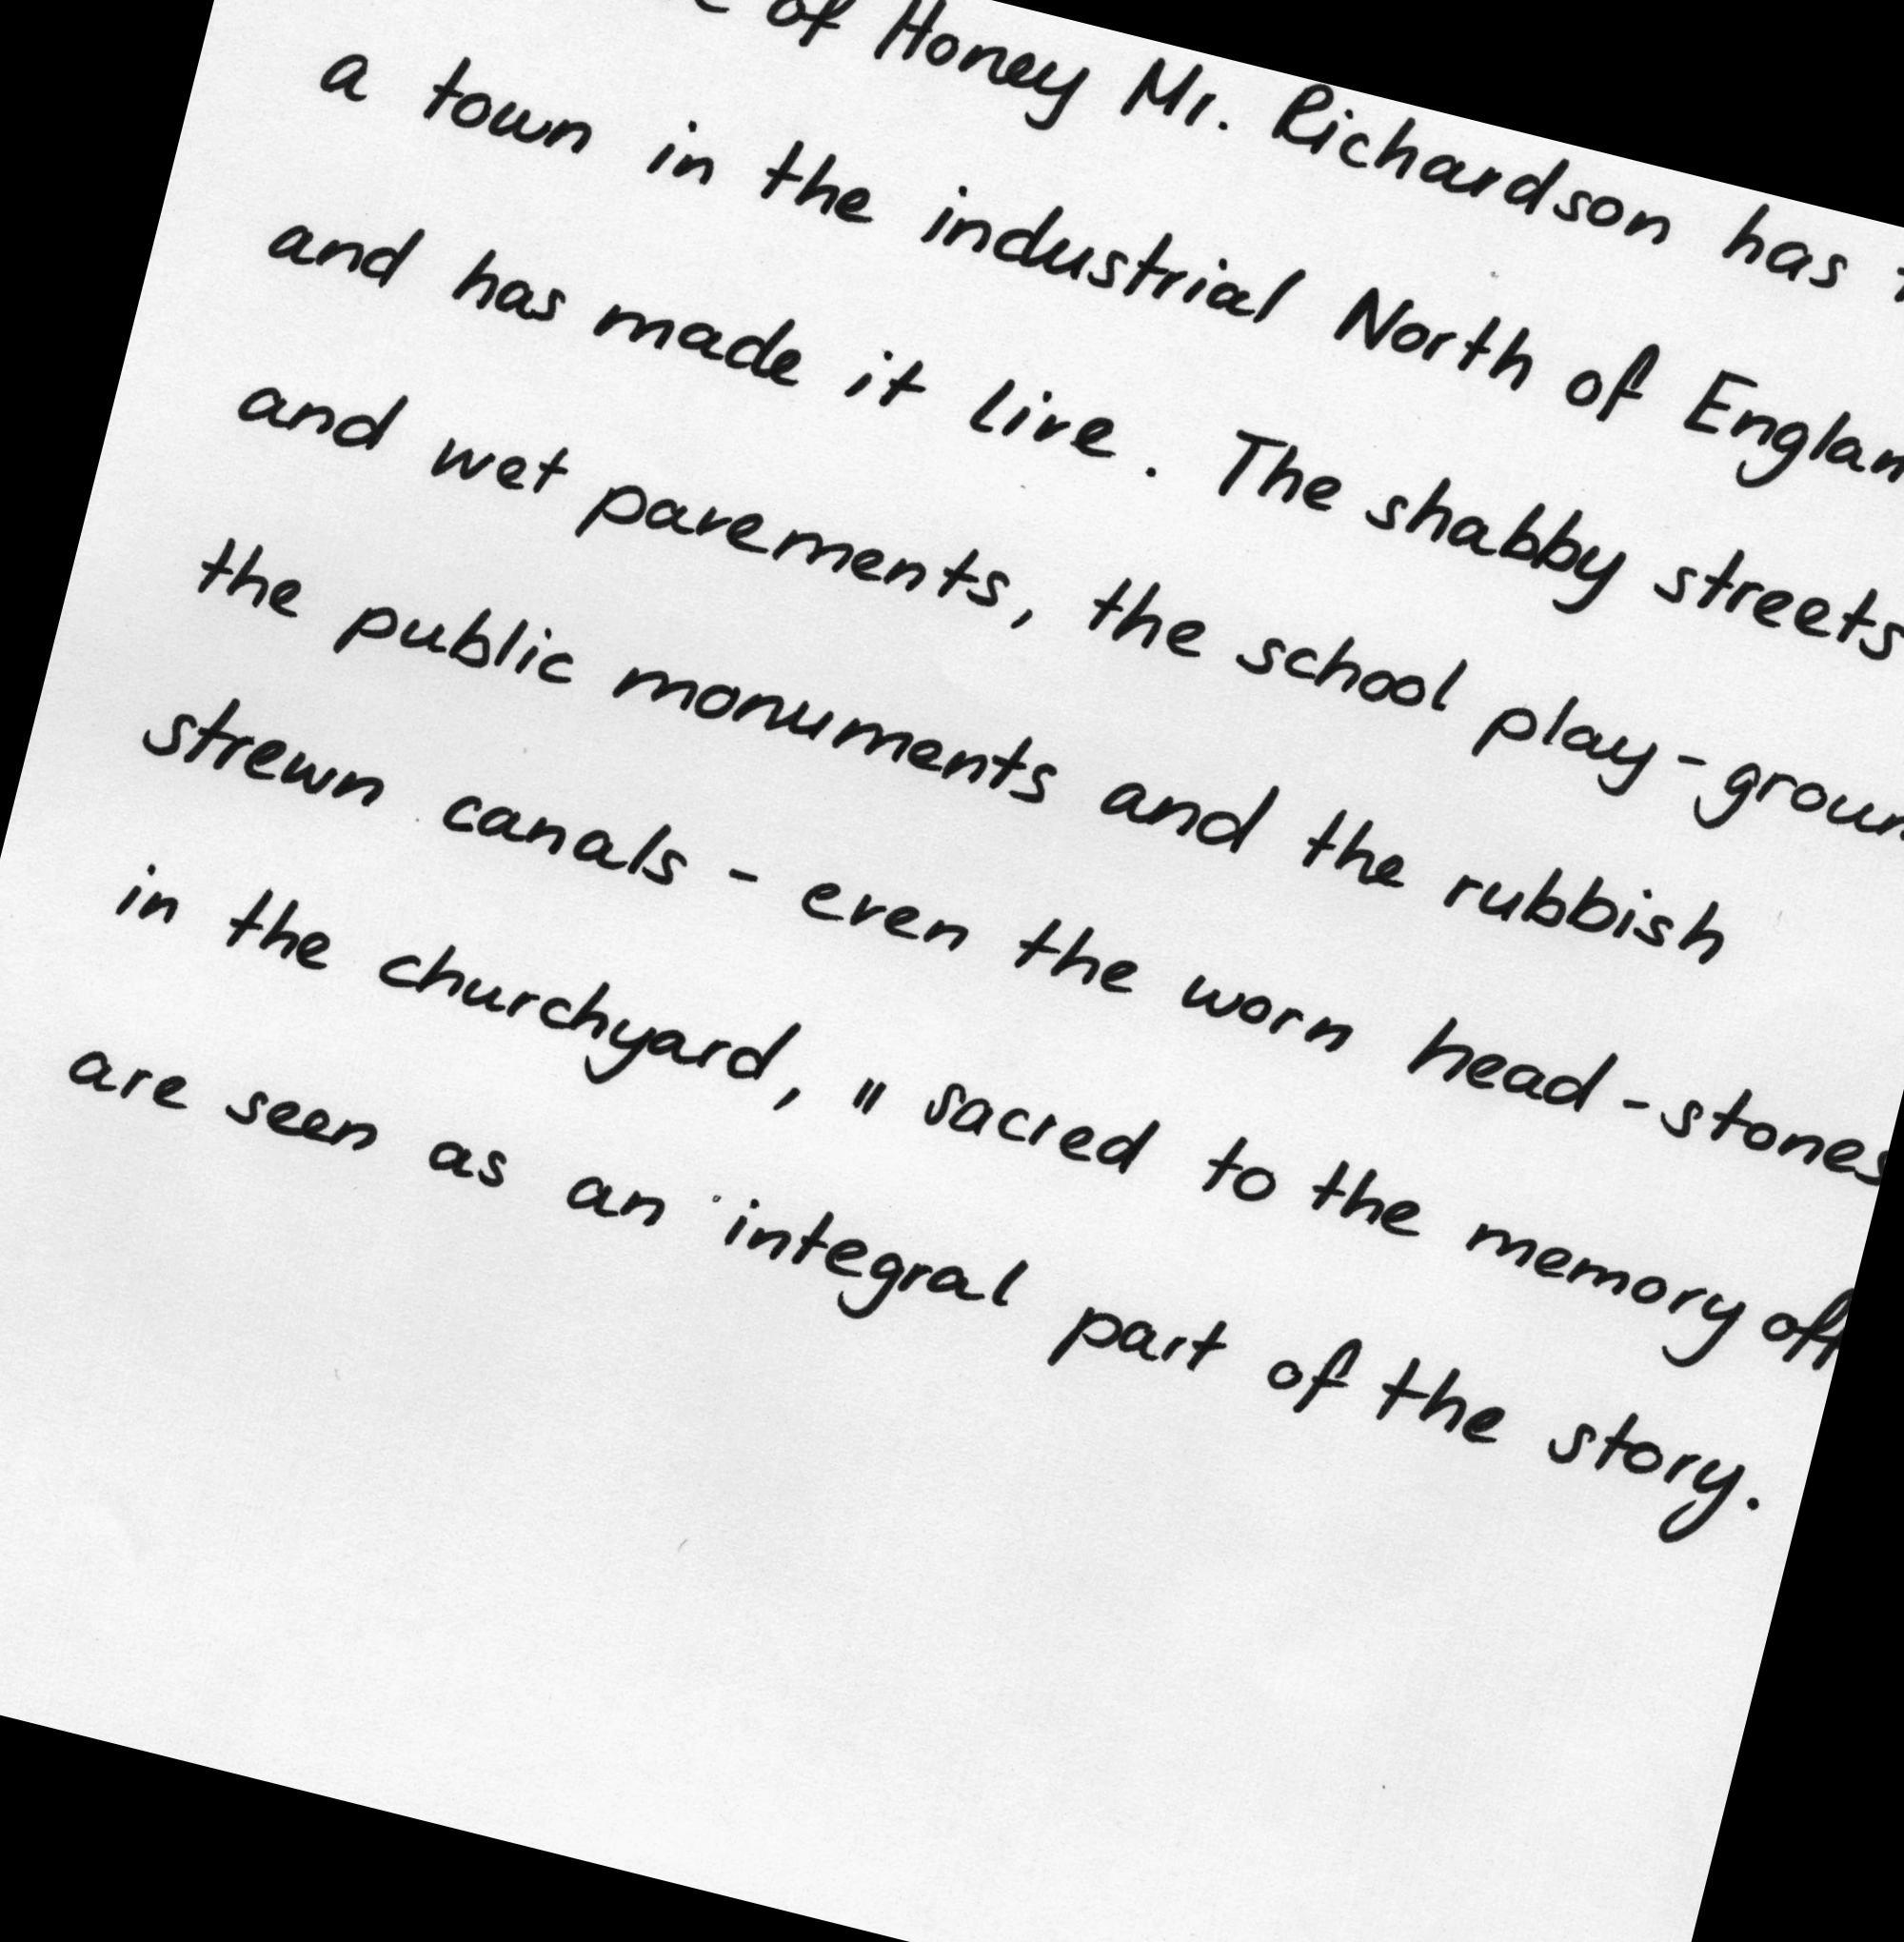 of Honey Mr. Richardson has
a town in the industrial North of
and has made it live. The shabby streets
and wet pavements, the school
the public monuments and the rubbish
strewn canals - even the worn head-stones
in the churchyard, " sacred to the memory
are seen as an integral part of the story.